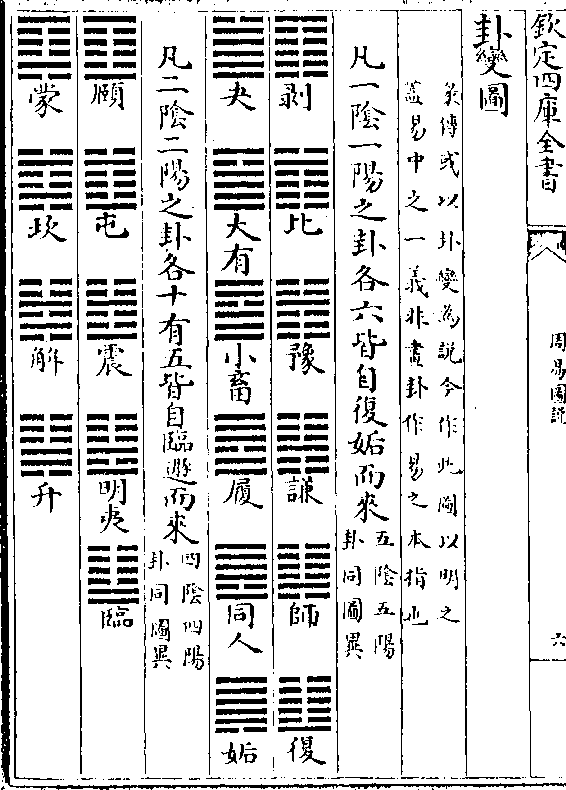 欽定四庫全書
周易圖説
六
卦變圖
彖傳或以卦變為説今作此圖以明之
蓋易中之一義非畫卦作易之本指也
凡一陰一陽之卦各六皆自復姤而來
五陰五陽
卦同圖異
剥 比 豫 謙 師 復
夬 大有 小畜 履 同人 姤
凡二陰二陽之卦各十有五皆自臨遯而來
四陰四陽
卦同圖異
頤 屯 震 明夷 臨
蒙 坎 解 升